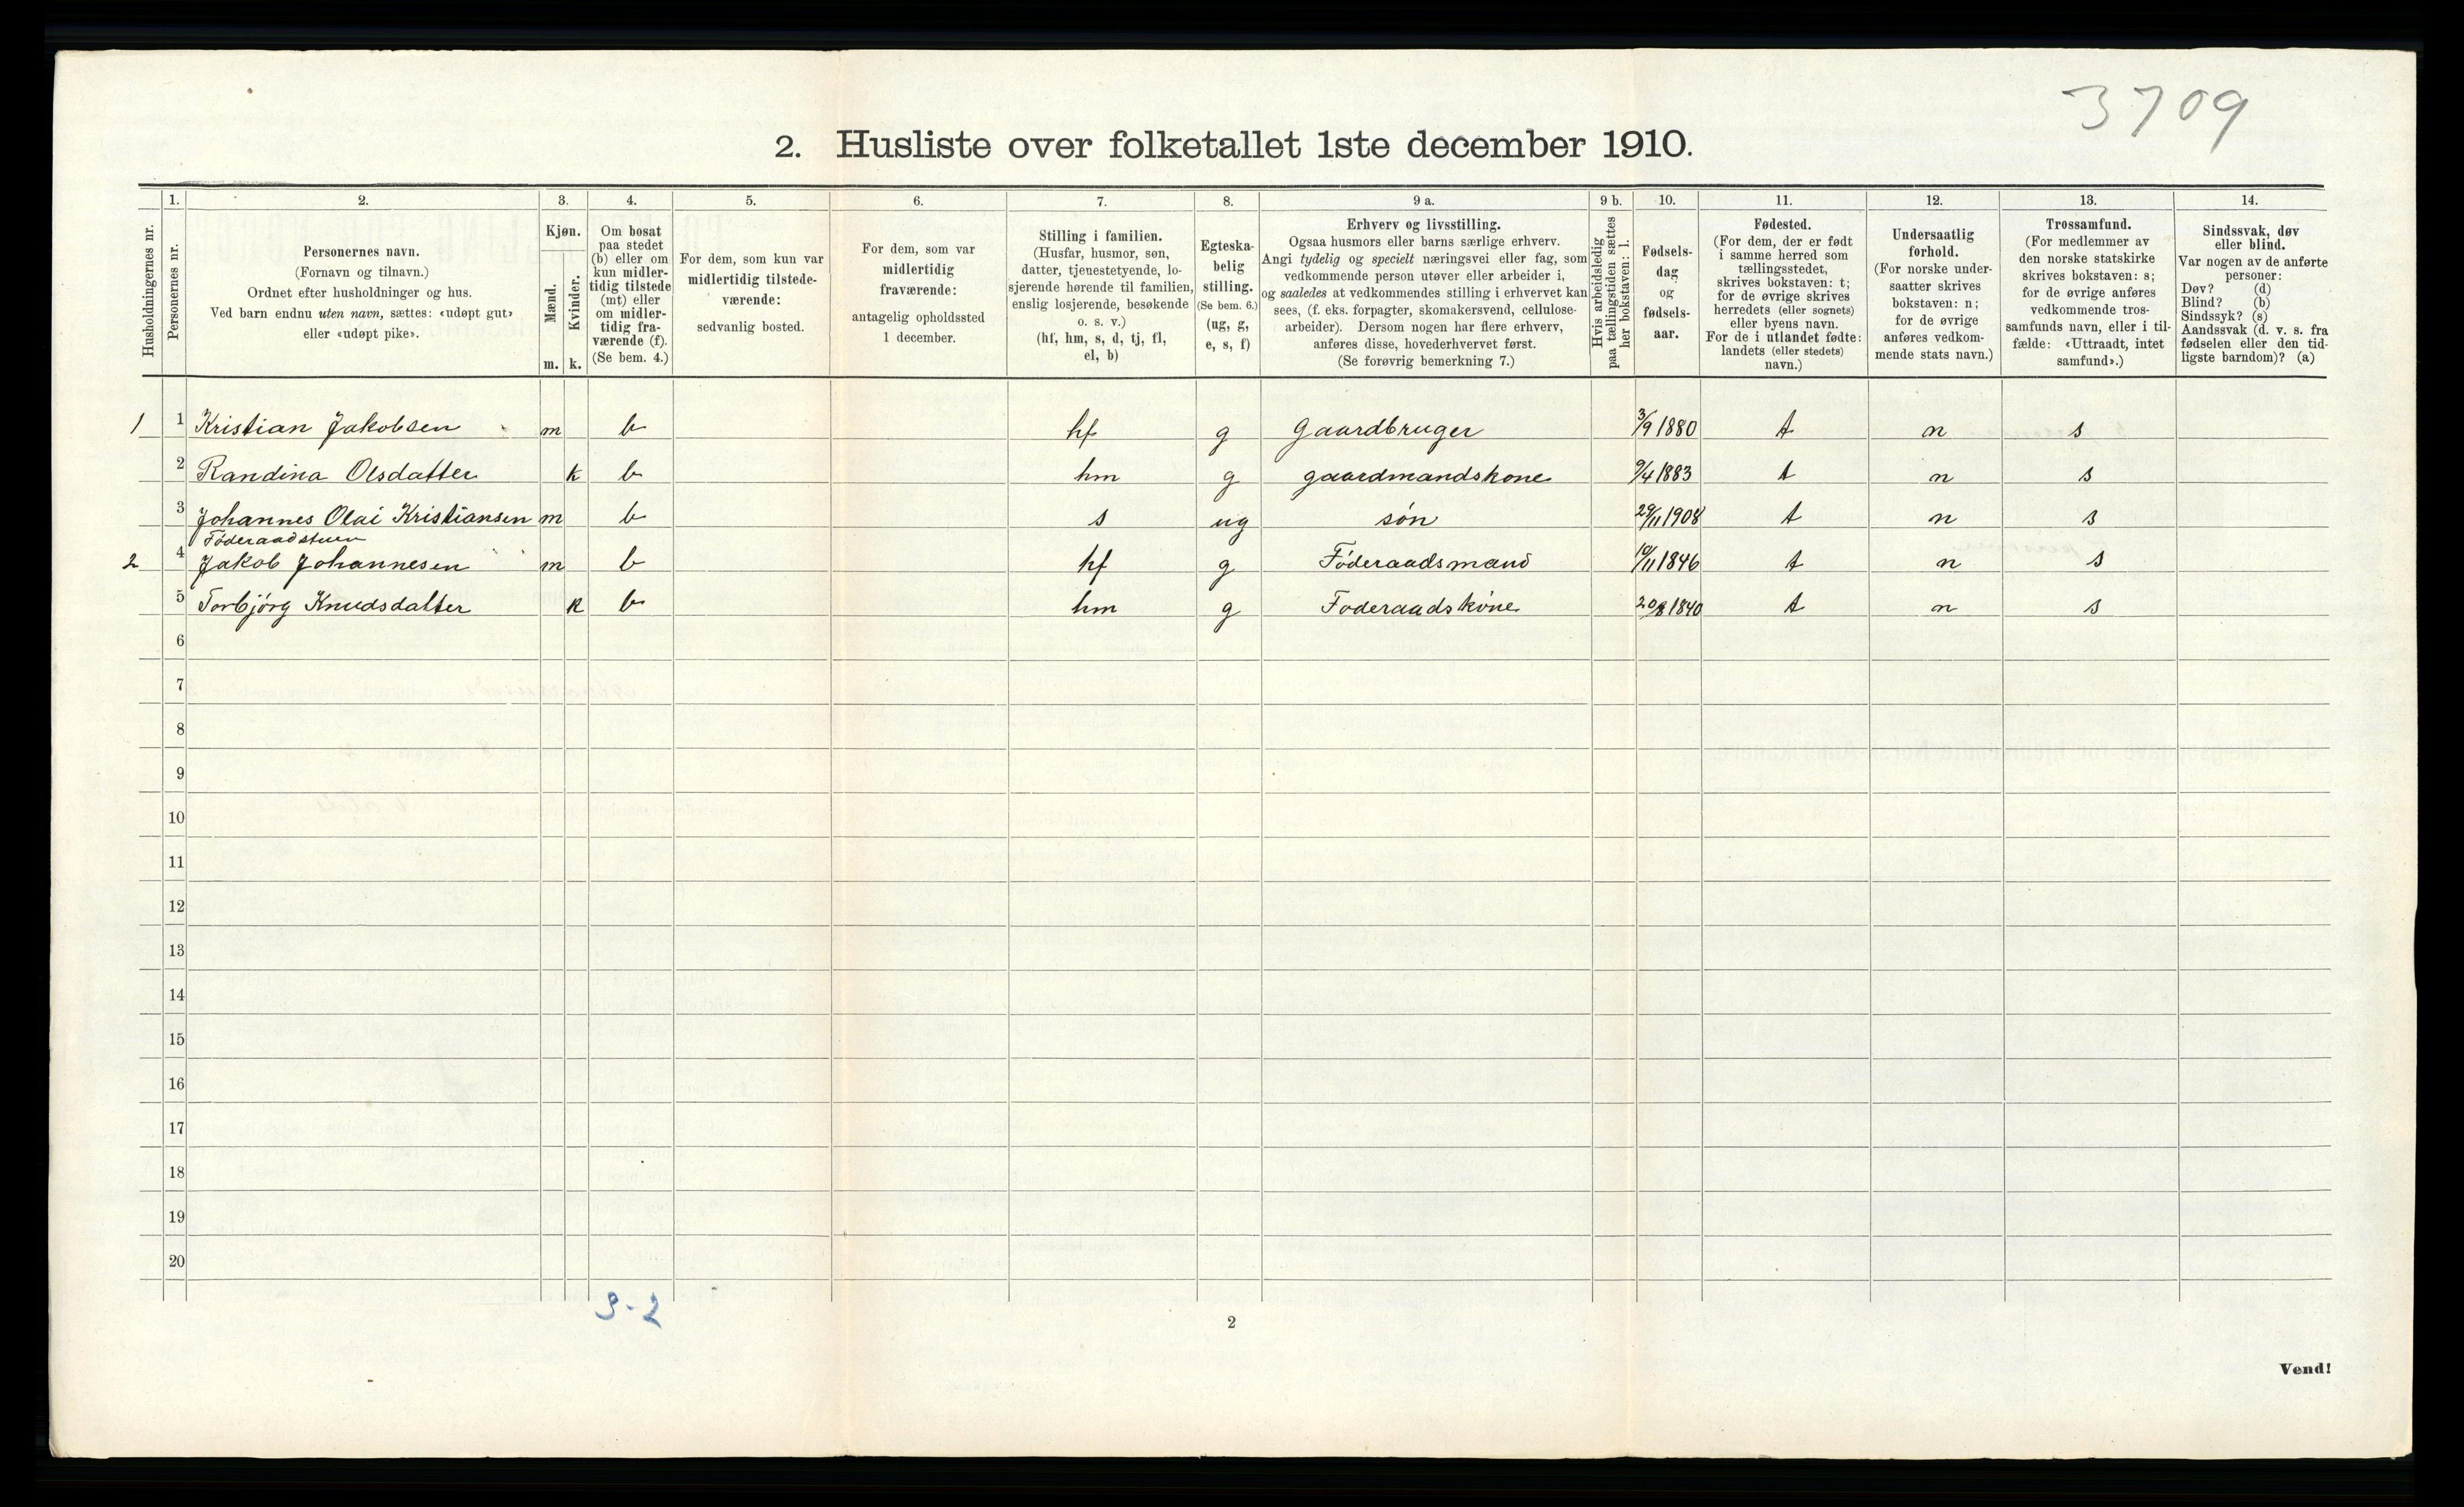 3709
2. Husliste over folketallet 1ste december 1910.
Husholdningernes nr.
1.
Personernes nr.
2.
Personernes navn.
(Fornavn og tilnavn.)
Ordnet efter husholdninger og hus.
Ved barn endnu uten navn, sættes: «udøpt gut»
eller «udøpt pike».
3.
Kjøn.
Mænd.
Kvinder.
m. k.
4.
Om bosat
paa stedet
(b) eller om
kun midler-
tidig tilstede
(mt) eller
om midler-
tidig fra-
værende (f).
(Se bem. 4.)
5.
For dem, som kun var
midlertidig tilstede-
værende:
sedvanlig bosted.
6.
For dem, som var
midlertidig
fraværende:
antagelig opholdssted
1 december.
7.
Stilling i familien.
(Husfar, husmor, søn,
datter, tjenestetyende, lo-
sjerende hørende til familien,
enslig losjerende, besøkende
o. s. v.)
(hf, hm, s, d, tj, fl,
el, b)
8.
Egteska-
belig
stilling.
(Se bem. 6.)
(ug, g,
e, s, f)
9 a.
Erhverv og livsstilling.
Ogsaa husmors eller barns særlige erhverv.
Angi tydelig og specielt næringsvei eller fag, som
vedkommende person utøver eller arbeider i,
og saaledes at vedkommendes stilling i erhvervet kan
sees, (f. eks. forpagter, skomakersvend, cellulose-
arbeider). Dersom nogen har flere erhverv,
anføres disse, hovederhvervet først.
(Se forøvrig bemerkning 7.)
9 b.
Hvis arbeidsledig
paa tællingstiden sættes
her bokstaven: l.
10.
Fødsels-
dag
og
fødsels-
aar.
11.
Fødested.
(For dem, der er født
i samme herred som
tællingsstedet,
skrives bokstaven: t;
for de øvrige skrives
herredets (eller sognets)
eller byens navn.
For de i utlandet fødte:
landets (eller stedets)
navn.)
12.
Undersaatlig
forhold.
(For norske under-
saatter skrives
bokstaven: n;
for de øvrige
anføres vedkom-
mende stats navn.)
13.
Trossamfund.
(For medlemmer av
den norske statskirke
skrives bokstaven: s;
for de øvrige anføres
vedkommende tros-
samfunds navn, eller i til-
fælde: «Uttraadt, intet
samfund».)
14.
Sindssvak, døv
eller blind.
Var nogen av de anførte
personer:
Døv? (d)
Blind? (b)
Sindssyk? (s)
Aandssvak (d. v. s. fra
fødselen eller den tid-
ligste barndom)? (a)
1 1 Kristian Jakobsen m b hf g Gaardbruger 3/9 1880 t n s
2 Randina Olsdatter k b hm g gaardmandskone 9/4 1883 t n s
3 Johannes Olai Kristiansen m b s ug søn 29/11 1908 t n s
Föderaadstuen
2 4 Jakob Johannesen m b hf g Föderaadsmand 10/11 1846 t n s
5 Torbjörg Knudsdatter k b hm g Foderaadskone 20/8 1840 t n s
6
7
8
9
10
11
12
13
14
15
16
17
18
19
20
3-2
2
Vend!